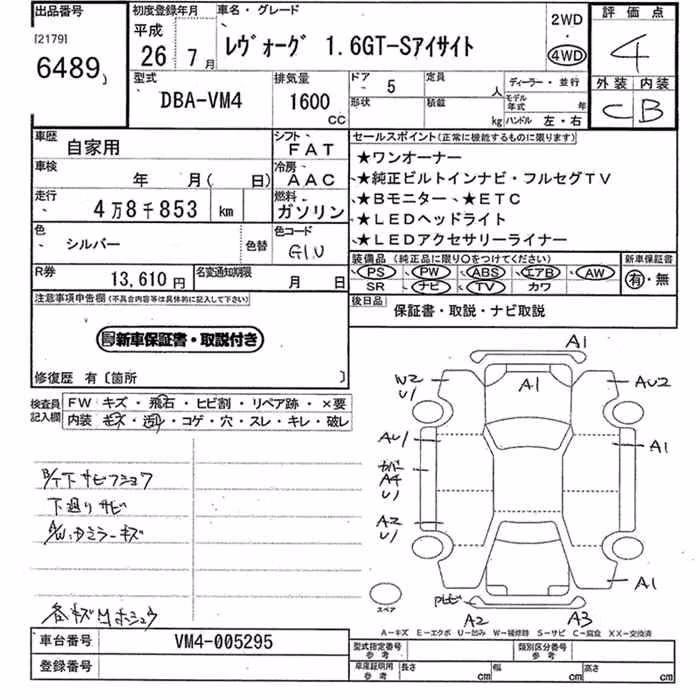 出品番号 初度登録年月 車名・グレード 2WD 評価点
[2179] 平成 レヴォーグ 1.6GT-Sアイサイト ・ 4
6489 26年 7月 4WD 外装 内装
型式 排気量 ドア 5 定員 人 ディーラー・並行 C B
DBA-VM4 1600cc 形状 積載 kg モデル年式 年
ハンドル 左・右
車歴 自家用 シフト FAT セールスポイント(正常に機能するものに限ります)
車検 年 月( 日) 冷房 AAC ★ワンオーナー
走行 4万8千853 km 燃料 ガソリン ★純正ビルトインナビ・フルセグTV
★Bモニター ★ETC
★LEDヘッドライト
色 シルバー 色替 色コード G1U ★LEDアクセサリーライナー
R券 13,610円 名変通知期限 月 日 装備品(純正品に限り○をつけてください) 新車保証書
PS PW ABS エアB AW 有・無
SR ナビ TV カワ
注意事項申告欄(不具合内容等は具体的に記入して下さい) 後日品 保証書・取説・ナビ取説
新車保証書・取説付き
修復歴 有〔箇所 〕
検査員記入欄 FW キズ・飛石・ヒビ割・リペア跡・×要
内装 キズ・汚れ・コゲ・穴・スレ・キレ・破レ
A1
A1
W2
U1
AU2
AU1
A1
A4
U1
A2
U1
A1
A2 A3
下廻りサビ
スペア
A-キズ E-エクボ U-凹み W-補修跡 S-サビ C-腐食 XX-交換済
車台番号 VM4-005295 型式指定番号 参考 類別区分番号 参考
登録番号 車庫証明用 参考 長さ cm 幅 cm 高さ cm